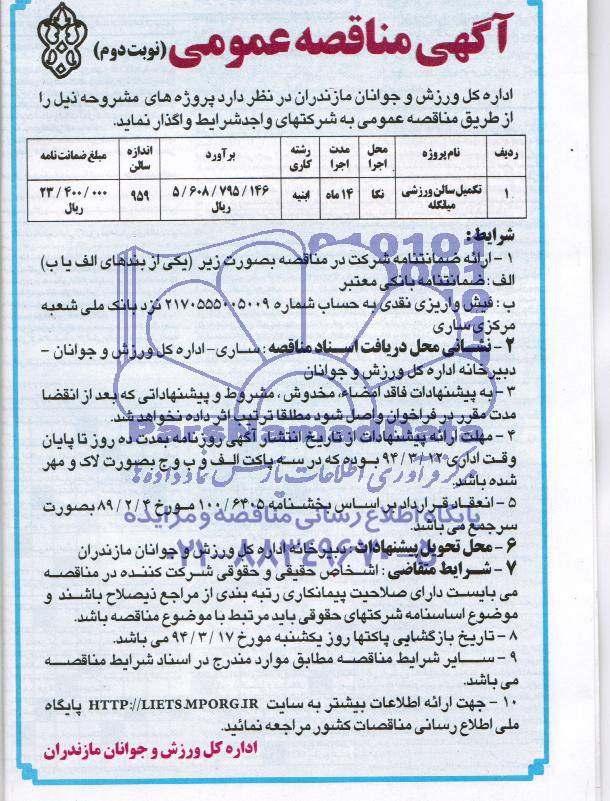 آگهی مناقصه عمومی (نوبت دوم)
اداره کل ورزش و جوانان مازندران در نظر دارد پروژه های مشروحه ذیل را
از طریق مناقصه عمومی به شرکتهای واجدشرایط واگذار نماید.
ردیف نام پروژه محل اجرا مدت اجرا رشته کاری برآورد اندازه سالن مبلغ ضمانت نامه
۱ تکمیل سالن ورزشی میانگله نکا ۱۴ ماه ابنیه ۵/۶۰۸/۷۹۵/۱۴۶ ریال ۹۵۹ ۲۳/۴۰۰/۰۰۰ ریال
شرایط:
۱- ارائه ضمانتنامه شرکت در مناقصه بصورت زیر (یکی از بندهای الف یا ب)
الف: ضمانتنامه بانکی معتبر
ب: فیش واریزی نقدی به حساب شماره ۲۱۷۰۵۵۵۰۰۵۰۰۹ نزد بانک ملی شعبه
مرکزی ساری
۲- نشانی محل دریافت اسناد مناقصه: ساری- اداره کل ورزش و جوانان -
دبیرخانه اداره کل ورزش و جوانان
۳- به پیشنهادات فاقد امضاء، مخدوش، مشروط و پیشنهاداتی که بعد از انقضا
مدت مقرر در فراخوان واصل شود مطلقا ترتیب اثر داده نخواهد شد.
۴- مهلت ارائه پیشنهادات از تاریخ انتشار آگهی روزنامه بمدت ده روز تا پایان
وقت اداری ۹۴/۳/۱۲ بوده که در سه پاکت الف و ب و ج بصورت لاک و مهر
شده باشد.
۵- انعقاد قرارداد بر اساس بخشنامه ۱۰۰/۶۴۰۵ مورخ ۸۹/۲/۴ بصورت
سرجمع می باشد.
۶- محل تحویل پیشنهادات: دبیرخانه اداره کل ورزش و جوانان مازندران
۷- شرایط متقاضی: اشخاص حقیقی و حقوقی شرکت کننده در مناقصه
می بایست دارای صلاحیت پیمانکاری رتبه بندی از مراجع ذیصلاح باشند و
موضوع اساسنامه شرکتهای حقوقی باید مرتبط با موضوع مناقصه باشد.
۸- تاریخ بازگشایی پاکتها روز یکشنبه مورخ ۹۴/۳/۱۷ می باشد.
۹- سایر شرایط مناقصه مطابق موارد مندرج در اسناد شرایط مناقصه
می باشد.
۱۰- جهت ارائه اطلاعات بیشتر به سایت HTTP://IETS.MPORG.IR پایگاه
ملی اطلاع رسانی مناقصات کشور مراجعه نمائید.
اداره کل ورزش و جوانان مازندران
ParsNamadData
مرکز فرآوری اطلاعات پارس نماد داده ها
پایگاه اطلاع رسانی مناقصه و مزایده
۰۲۱-۸۸۳۴۹۶۷۰-۵